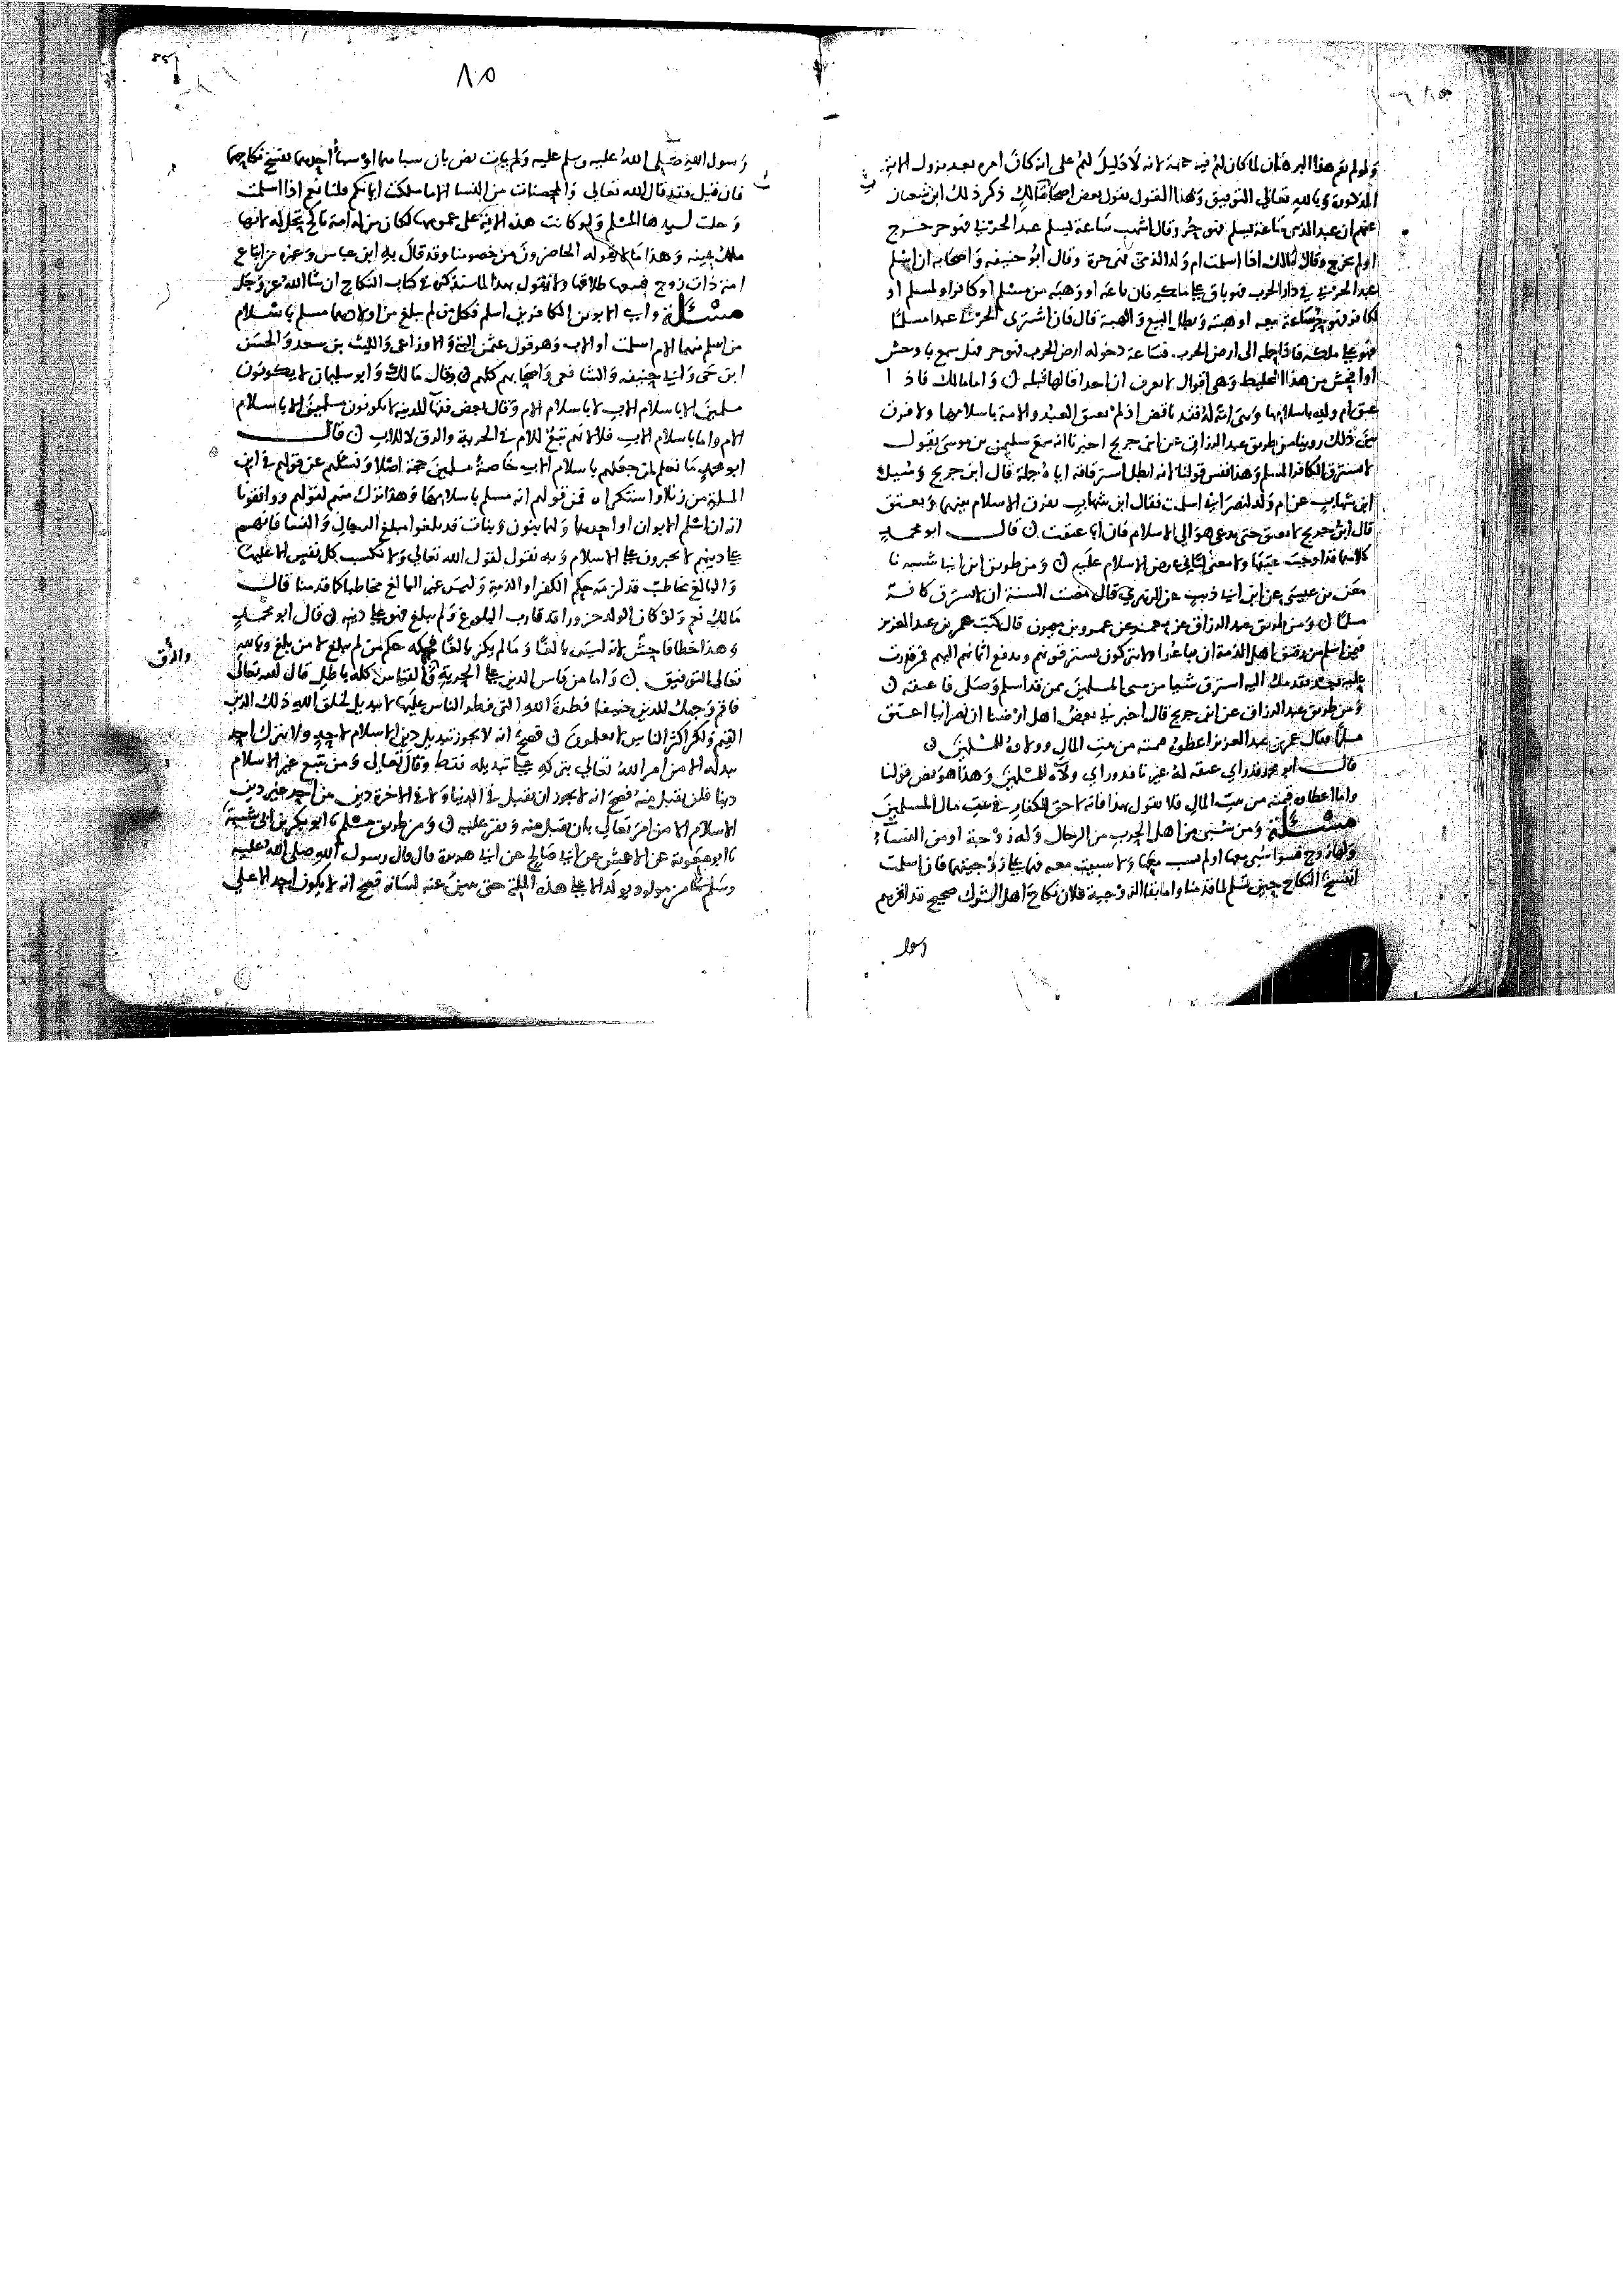 ولو لم يقم هذا البرهان لما كان لهم فيه حجة لانه لا دليل لهم على انه كان امره بعد نزول الاية
المذكورة وبالله تعالى التوفيق وبهذا القول يقول بعض اصحاب مالك ذكر ذلك ابن شعبان
عنهم ان عبد الذمي ساعة يسلم فهو حر وقال اشهب ساعة يسلم عبد الحربي فهو حر خرج
او لم يخرج وقال مالك اذا اسلمت ام ولد الذمي فهي حرة وقال ابو حنيفه واصحابه ان اسلم
عبد الحربي في دار الحرب فهو باق على ملكه فان باعه او وهبه من مسلم او كافر او لمسلم او
لكافر فهو حر ساعة بيعه او هبته وبطل البيع والهبة قال فان اشترى الحربي عبدا مسلما
فهو على ملكه فاذا حمله الى ارض الحرب فساعة دخوله ارض الحرب فهو حر فهل سمع باوحش
او افحش من هذا التخليط وهي اقوال لا نعرف ان احدا قالها قبله واما مالك فاذا
عتق ام ولده باسلامها ومن الله له فقد ناقض اذ لم يعتق العبد والامة باسلامها ولا فرق
بين ذلك روينا من طريق عبد الرزاق عن ابن جريج اخبرنا انه سمع سليمن بن موسى يقول
لا يسترق الكافر المسلم وهذا نفس قولنا لانه ابطل استرقاقه اياه جملة قال ابن جريج وسئل
ابن شهاب عن ام ولد لنصراني اسلمت فقال ابن شهاب يفرق الاسلام بينهما ويعتق
قال ابن جريج لا تعتق حتى يدعى هو الى الاسلام فان ابى عتقت قال ابو محمد
كلاهما قد اوجب عتقها ولا معنى لتاني عرض الاسلام عليه ومن طريق ابن ابي شيبه نا
معن بن عيسى عن ابن ابي ذيب عن الزهري قال مضت السنة ان لا يسترق كافر
مسلما ومن طريق عبد الرزاق عن معمر عن عمرو بن ميمون قال كتب عمر بن عبد العزيز
فيمن اسلم من رقيق اهل الذمة ان يباعوا ولا يتركون يسترقونهم ويدفع اثمانهم اليهم فمن قدرت
عليه بعد تقدمك اليه استرق شيا من سبي المسلمين ممن قد اسلم وصلى فاعتقه
ومن طريق عبد الرزاق عن ابن جريج قال اخبرني بعض اهل ارضنا ان نصرانيا اعتق
مسلما فقال عمر بن عبد العزيز اعطوه قيمته من بيت المال وولاوه للمسلمين
قال ابو محمد فقد راى عتقه له غير نافذ وراى ولاه للمسلمين وهذا هو نص قولنا
واما اعطاه قيمته من بيت المال فلا نقول بهذا فانه لا حق للكفار في بيت مال المسلمين
مسئلة ومن سبي من اهل الحرب من الرجال وله زوجة او من النساء
ولها زوج فسوا سبي معها او لم يسب معها ولا سبيت معه فهما على زوجيتهما فان اسلمت
انفسخ النكاح حين تسلم لما قدمنا واما بقا الزوجية فلان نكاح اهل الشرك صحيح قد اقرهم
رسول
٨٥
رسول الله صلى الله عليه وسلم عليه ولم يات نص بان سباهما او سبا احدهما يفسخ نكاحهما
فان قيل فقد قال الله تعالى والمحصنات من النسا الا ما ملكت ايمانكم قلنا نعم اذا اسلمت
وحلت لسيدها المسلم ولو كانت هذه الاية على عمومها لكان من له امة ناكح يحل له لانها
ملك يمينه وهذا ما لا يقوله الحاضرون من خصومنا وقد قال به ابن عباس وغيره من ابتاع
امة ذات زوج فبيعها طلاقها ولا نقول بهذا لما سنذكره في كتاب النكاح ان شا الله عز وجل
مسئلة واي الابوين الكافرين اسلم فكل من لم يبلغ من اولادهما مسلم باسلام
من اسلم منهما الام اسلمت او الاب وهو قول عثمن البتي والاوزاعي والليث بن سعد والحسن
ابن حي وابي حنيفه والشافعي واصحابهم كلهم وقال مالك وابو سليمان لا يكونون
مسلمين الا باسلام الاب لا باسلام الام وقال بعض فقهآ المدينة لا يكونون مسلمين الا باسلام
الام واما باسلام الاب فلا لانهم تبع للام في الحرية والرق لا للاب قال
ابو محمد ما نعلم لمن جعلهم باسلام الاب خاصة مسلمين حجة اصلا ونسئلهم عن قولهم في ابن
المسلمة من زنا او استكراه فمن قولهم انه مسلم باسلامها وهذا ترك منهم لقولهم ووافقونا
انه ان اسلم الابوان او احدهما ولهما بنون وبنات قد بلغوا مبلغ الرجال والنسا فانهم
على دينهم لا يجبرون على الاسلام وبه نقول لقول الله تعالى ولا تكسب كل نفس الا عليها
والبالغ مخاطب قد لزمه حكم الكفر او الذمة وليس غير البالغ مخاطبا كما قدمنا قال
مالك نعم ولو كان الولد حزورا قد قارب البلوغ ولم يبلغ فهو على دينه قال ابو محمد
وهذا خطا فاحش لانه ليس بالغا وما لم يكن بالغا فحكمه حكم من لم يبلغ لا من بلغ وبالله
تعالى التوفيق واما من قاس الدين على الحرية فالقياس كله باطل قال الله تعالى
والرق
فاقم وجهك للدين حنيفا فطرة الله التي فطر الناس عليها لا تبديل لخلق الله ذلك الدين
القيم ولكن اكثر الناس لا يعلمون فصح انه لا يجوز تبديل دين الاسلام لاحد ولا يترك احد
يبدله الا من امر الله تعالى بتركه على تبديله فقط وقال تعالى ومن يتبع غير الاسلام
دينا فلن يقبل منه فصح انه لا يجوز ان يقبل في الدنيا ولا في الاخرة دين من احد غير دين
الاسلام الا من امر تعالى بان يقبل منه ويقر عليه ومن طريق مسلم نا ابو بكر بن ابي شيبة
نا ابو معوية عن الاعمش عن ابي صالح عن ابي هريرة قال قال رسول الله صلى الله عليه
وسلم ما من مولود يولد الا على هذه الملة حتى يبين عنه لسانه فصح انه لا يكون احد الا على